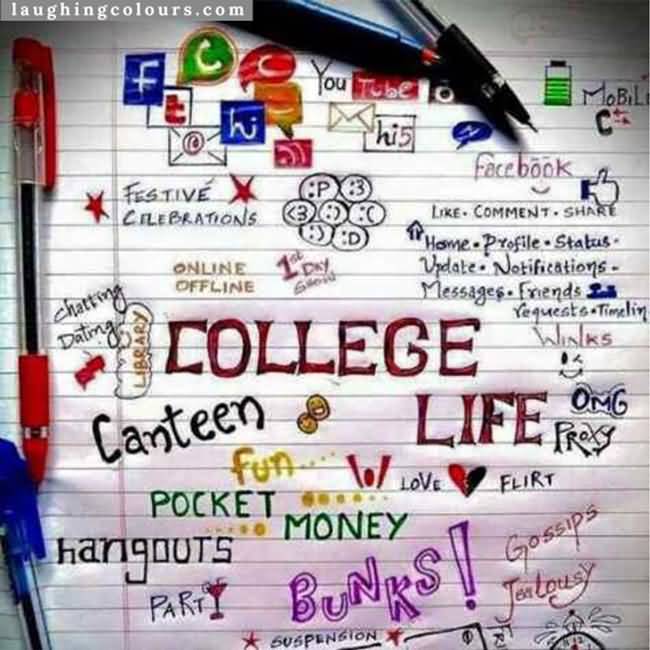 laughingcolours.com
f
You Tube
@
hi
hi5
MOBILE
Facebook
FESTIVE
CELEBRATIONS
:P :3
<3 :) :(
:) :D
LIKE. COMMENT. SHARE
Home. Profile. Status.
Update. Notifications.
Messages. Friends
requests. Timelin
ONLINE
OFFLINE
1st
DAY
SHOW
Chatting
Dating
LIBRARY
WINKS
COLLEGE
LIFE
OMG
PROXY
Canteen
fun....
LOVE FLIRT
POCKET
MONEY
hangOUTS
PARTY
BUNKS!
GOSSIPS
JEALOUSY
SUSPENSION